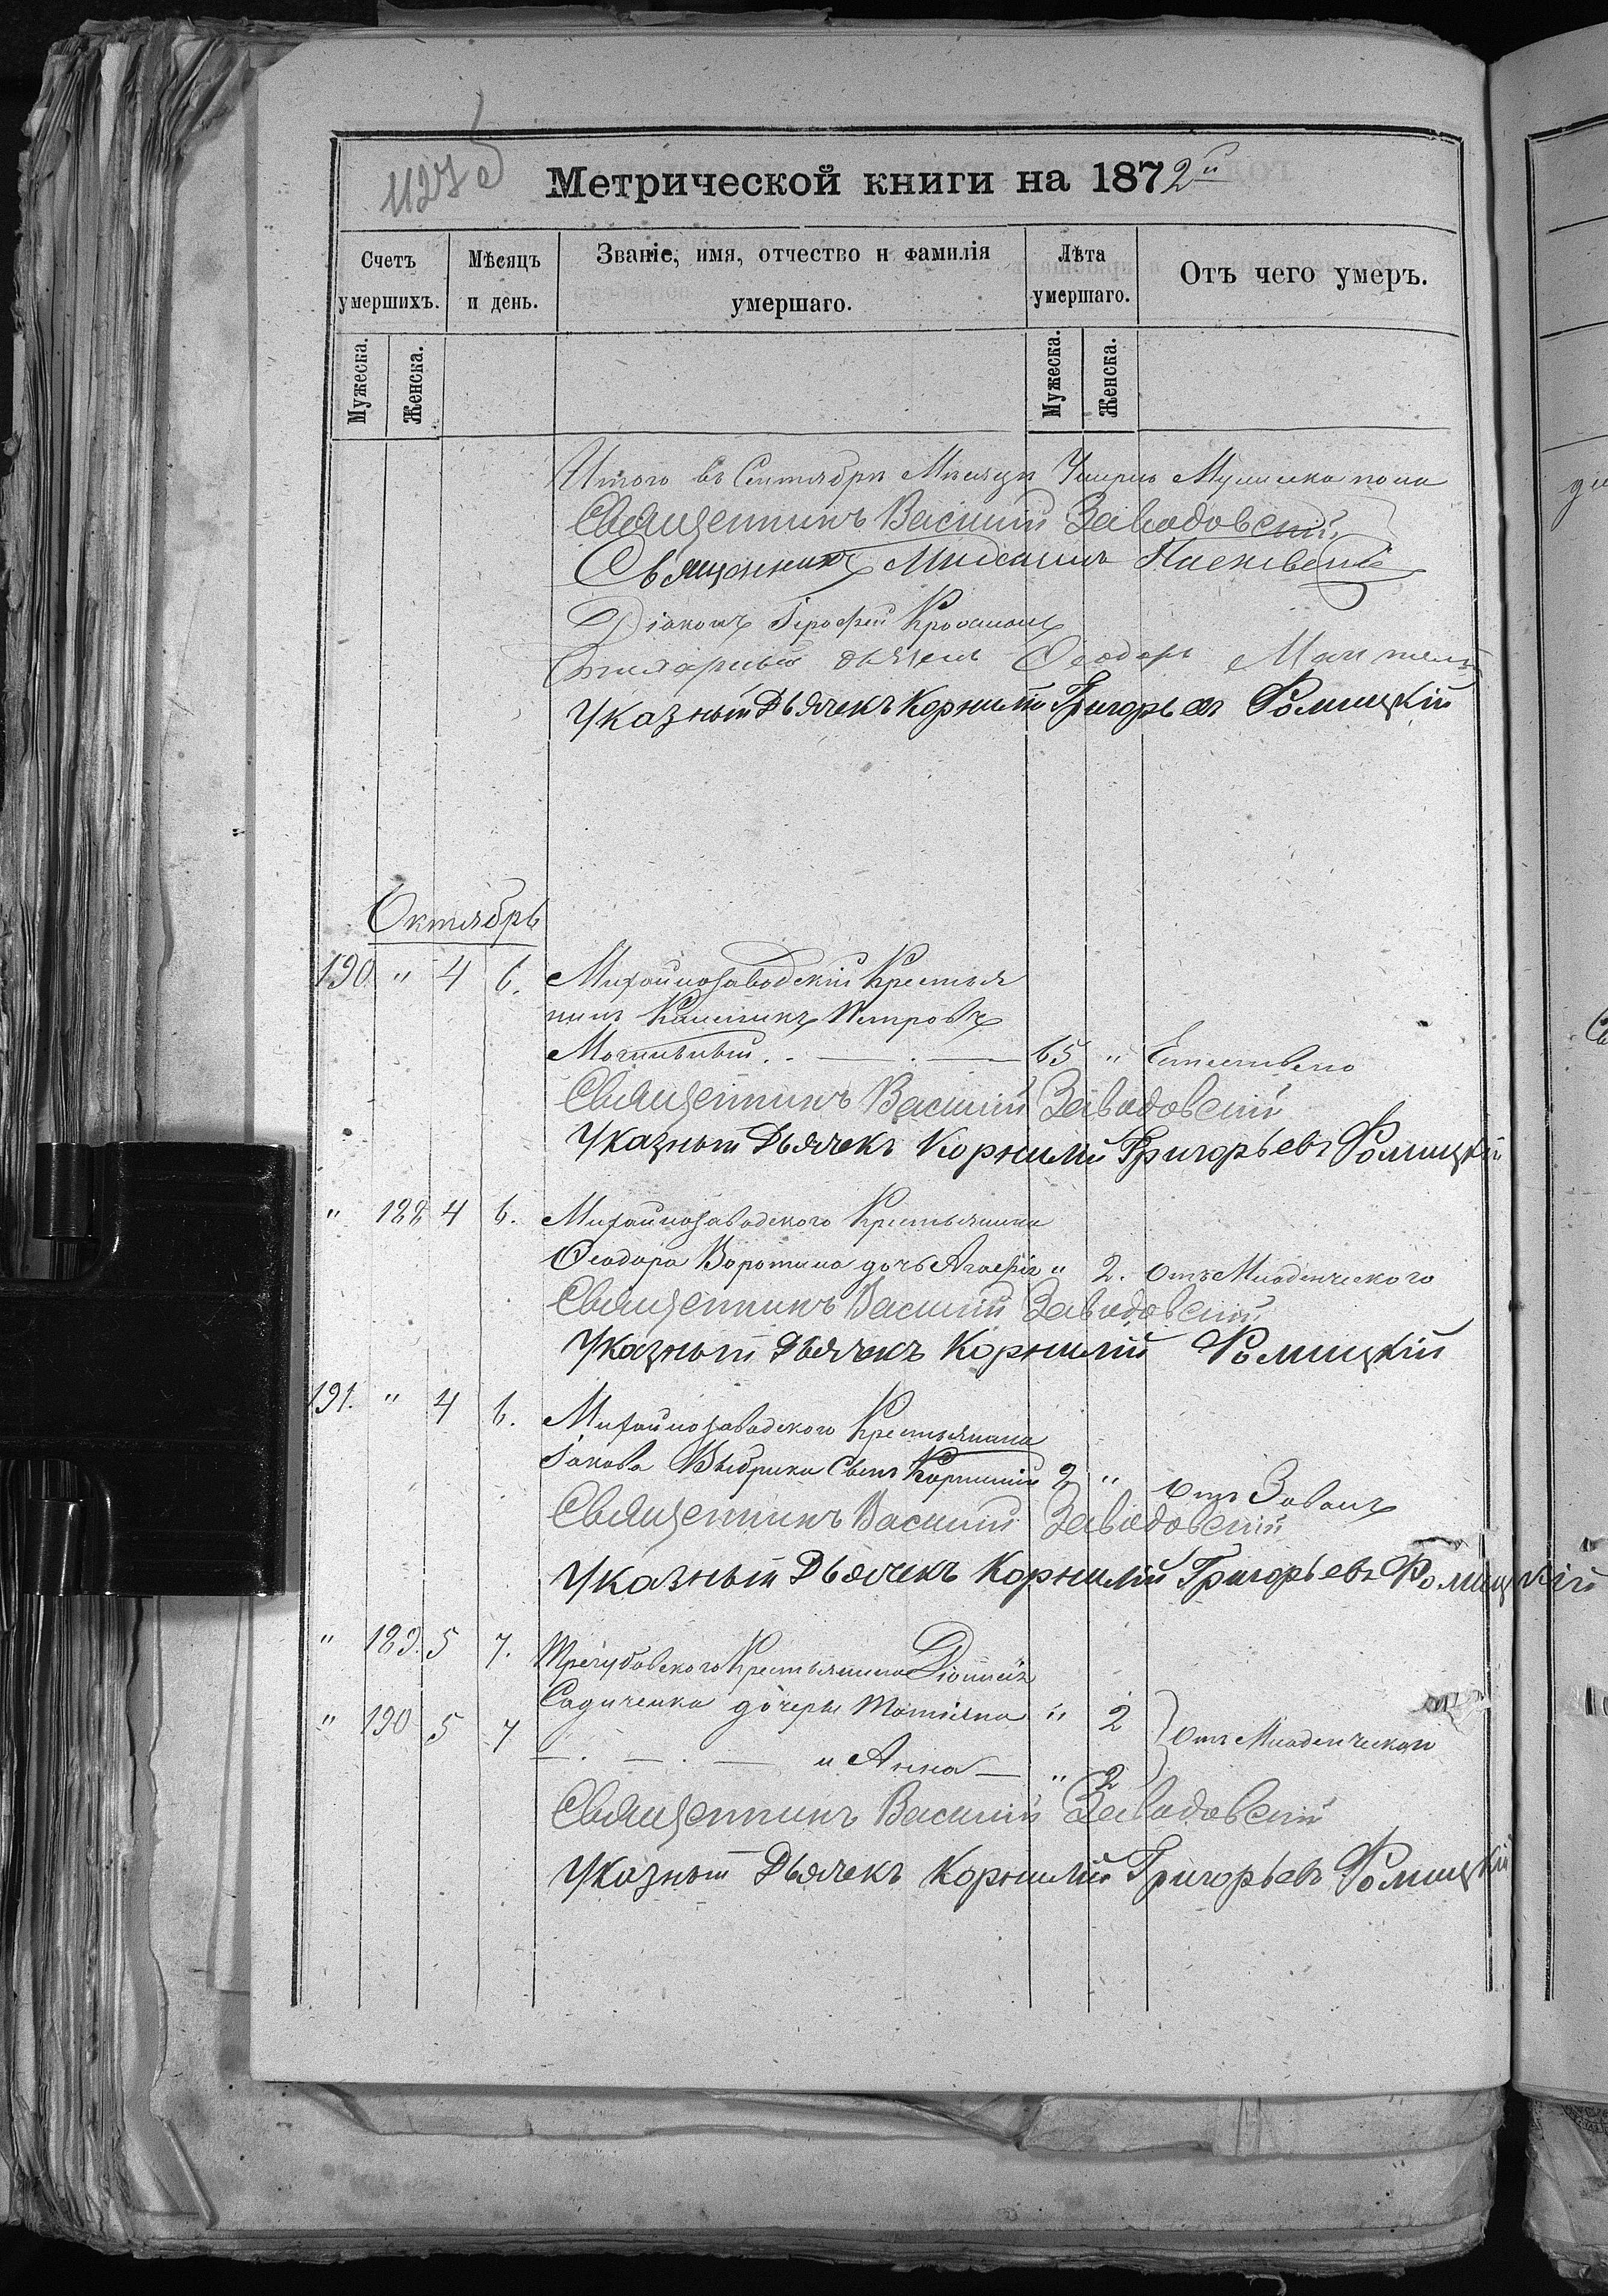 1127 б
Метрической книги на 1872й
Счетъ умершихъ.
Мѣсяцъ и день.
Званіе, имя, отчество и фамилія умершаго.
Лѣта умершаго.
Отъ чего умеръ.
Мужеска. Женска. Мужеска. Женска.
Итого въ Сентябрѣ Мѣсяцѣ Умерло Мужеска пола
Священникъ Василій Заводовскій
Священникъ
Діаконъ Іерофей
Стихарный дьячекъ Ѳеодоръ
Указный Дьячекъ Корнилій Григорьевъ Фомицкій
Октябрь
190. " 4 6. Михайлозаводскій Крестья
нинъ Калѣникъ Петровъ
65 " Естественно
Священникъ Василій Заводовскій
Указный Дьячекъ Корнилій Григорьевъ Фомицкій
" 188 4 6. Михайлозаводского Крестьянина
Ѳеодора Воротина дочь Агафія " 2. отъ Младенческого
Священникъ Василій Заводовскій
Указный Дьячекъ Корнилій Фомицкій
191. " 4 6. Михайлозаводского Крестьянина
Іакова Сынъ Корнилій 2 " отъ Зобовъ
Священникъ Василій Заводовскій
Указный Дьячекъ Корнилій Григорьевъ Фомицкій
" 189. 5 7. Трегубовского Крестьянина Діонисія
Садиченка дочери Татіяна " 2
" 190 5 7 и Анна " 2 отъ Младенческой
Священникъ Василій Заводовскій
Указный Дьячекъ Корнилій Григорьевъ Фомицкій